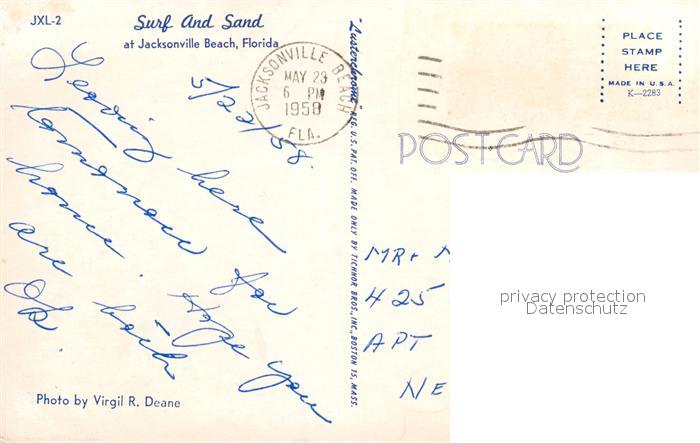 JXL-2
Surf And Sand
at Jacksonville Beach, Florida
5/23/58.
Leaving here
tomorrow for
home. Hope you
are both
Ok.
Photo by Virgil R. Deane
JACKSONVILLE BEACH
MAY 23
6 PM
1958
FLA.
"Lusterchrome" REG. U.S. PAT. OFF. MADE ONLY BY TICHNOR BROS., INC., BOSTON 15, MASS.
PLACE
STAMP
HERE
MADE IN U.S.A.
K—2283
POST CARD
MR + M
425
APT
NE
privacy protection
Datenschutz